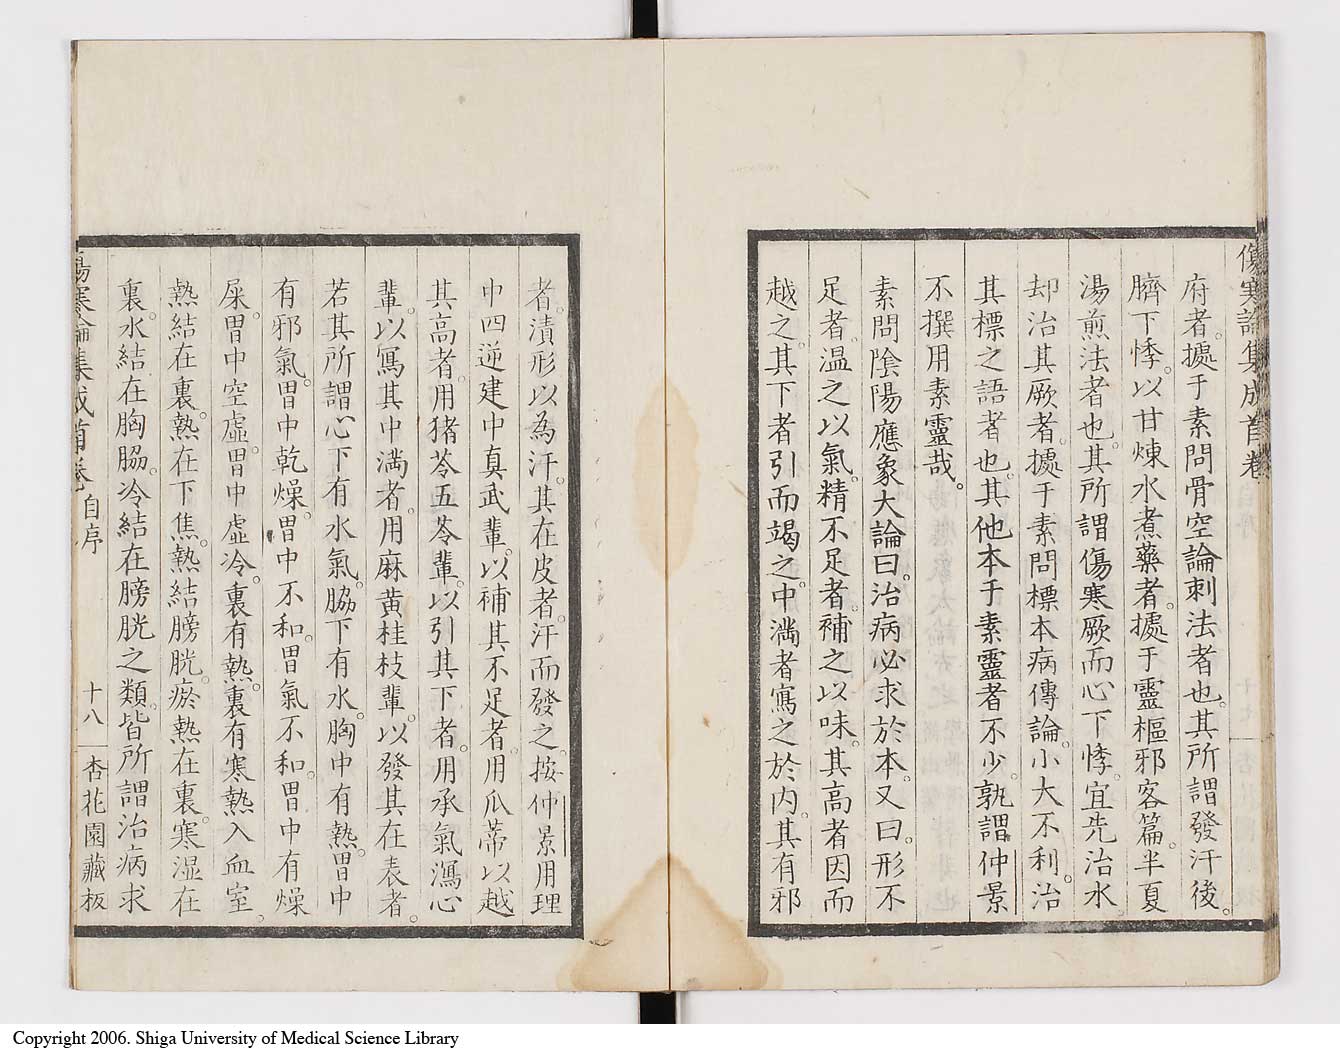 傷寒論集成首卷
府者。據于素問骨空論刺法者也。其所謂發汗後。
臍下悸。以甘煉水煮藥者。據于靈樞邪客篇。半夏
湯煎法者也。其所謂傷寒厥而心下悸。宜先治水。
却治其厥者。據于素問標本病傳論。小大不利。治
其標之語者也。其他本于素靈者不少。孰謂仲景
不撰用素靈哉。
素問陰陽應象大論曰。治病必求於本。又曰。形不
足者。溫之以氣。精不足者。補之以味。其高者因而
越之。其下者引而竭之。中満者寫之於內。其有邪
者。漬形以為汗。其在皮者。汗而發之。按仲景用理
中四逆建中真武輩。以補其不足者。用瓜蒂以越
其高者。用猪苓五苓輩。以引其下者。用承氣瀉心
輩。以寫其中満者。用麻黄桂枝輩。以發其在表者。
若其所謂心下有水氣。脇下有水。胸中有熱。胃中
有邪氣。胃中乾燥。胃中不和。胃氣不和。胃中有燥
屎。胃中空虛。胃中虛冷。裏有熱。裏有寒熱入血室。
熱結在裏。熱在下焦。熱結膀胱。瘀熱在裏。寒湿在
裏。水結在胸脇。冷結在膀胱之類。皆所謂治病求
傷寒論集成首卷 自序 十八 杏花園藏板
Copyright 2006. Shiga University of Medical Science Library